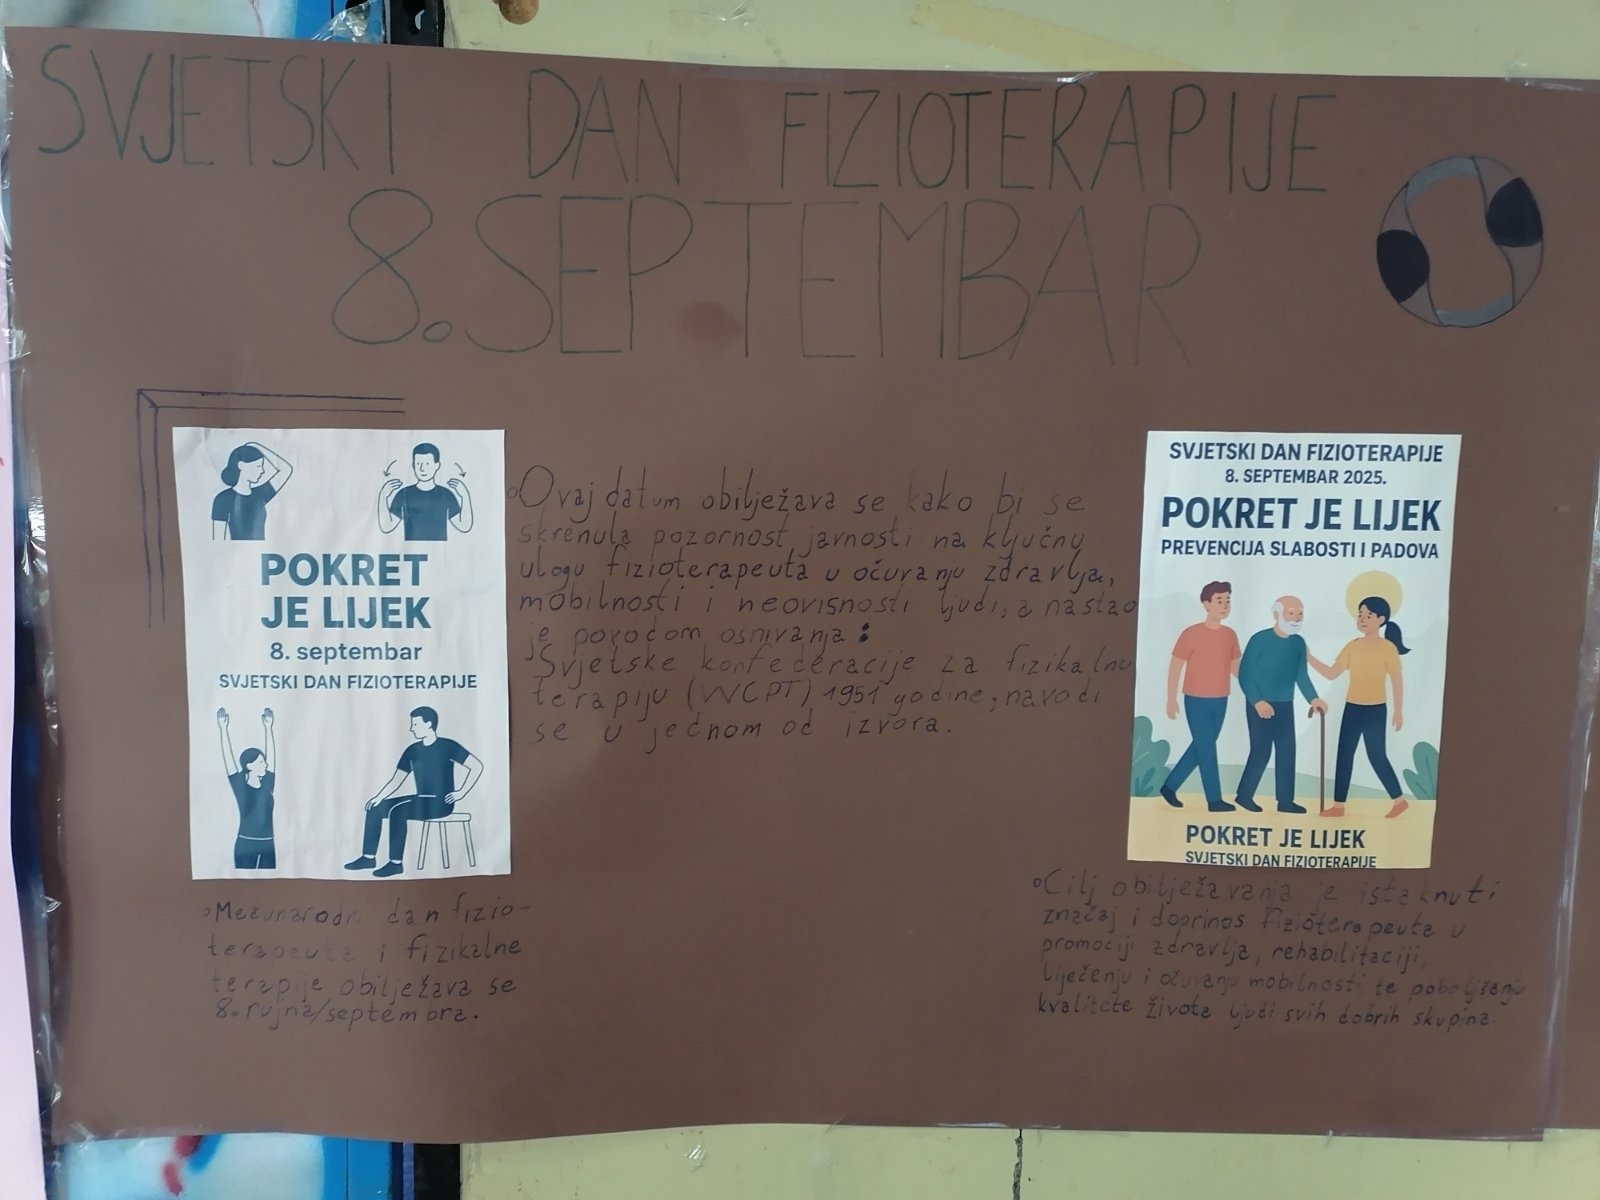 SVJETSKI DAN FIZIOTERAPIJE
8. SEPTEMBAR
POKRET
JE LIJEK
8. septembar
SVJETSKI DAN FIZIOTERAPIJE
Ovaj datum obilježava se kako bi se
skrenula pozornost javnosti na ključnu
ulogu fizioterapeuta u očuvanju zdravlja,
mobilnosti i neovisnosti ljudi, a nastao
je povodom osnivanja:
Svjetske konfederacije za fizikalnu
terapiju (WCPT) 1951 godine, navodi
se u jednom od izvora.
SVJETSKI DAN FIZIOTERAPIJE
8. SEPTEMBAR 2025.
POKRET JE LIJEK
PREVENCIJA SLABOSTI I PADOVA
POKRET JE LIJEK
SVJETSKI DAN FIZIOTERAPIJE
Međunarodni dan fizio-
terapeuta i fizikalne
terapije obilježava se
8. rujna/septembra.
Cilj obilježavanja je istaknuti
značaj i doprinos fizioterapeuta u
promociji zdravlja, rehabilitaciji,
liječenju i očuvanju mobilnosti, te poboljšanju
kvalitete života ljudi svih dobrih skupina.